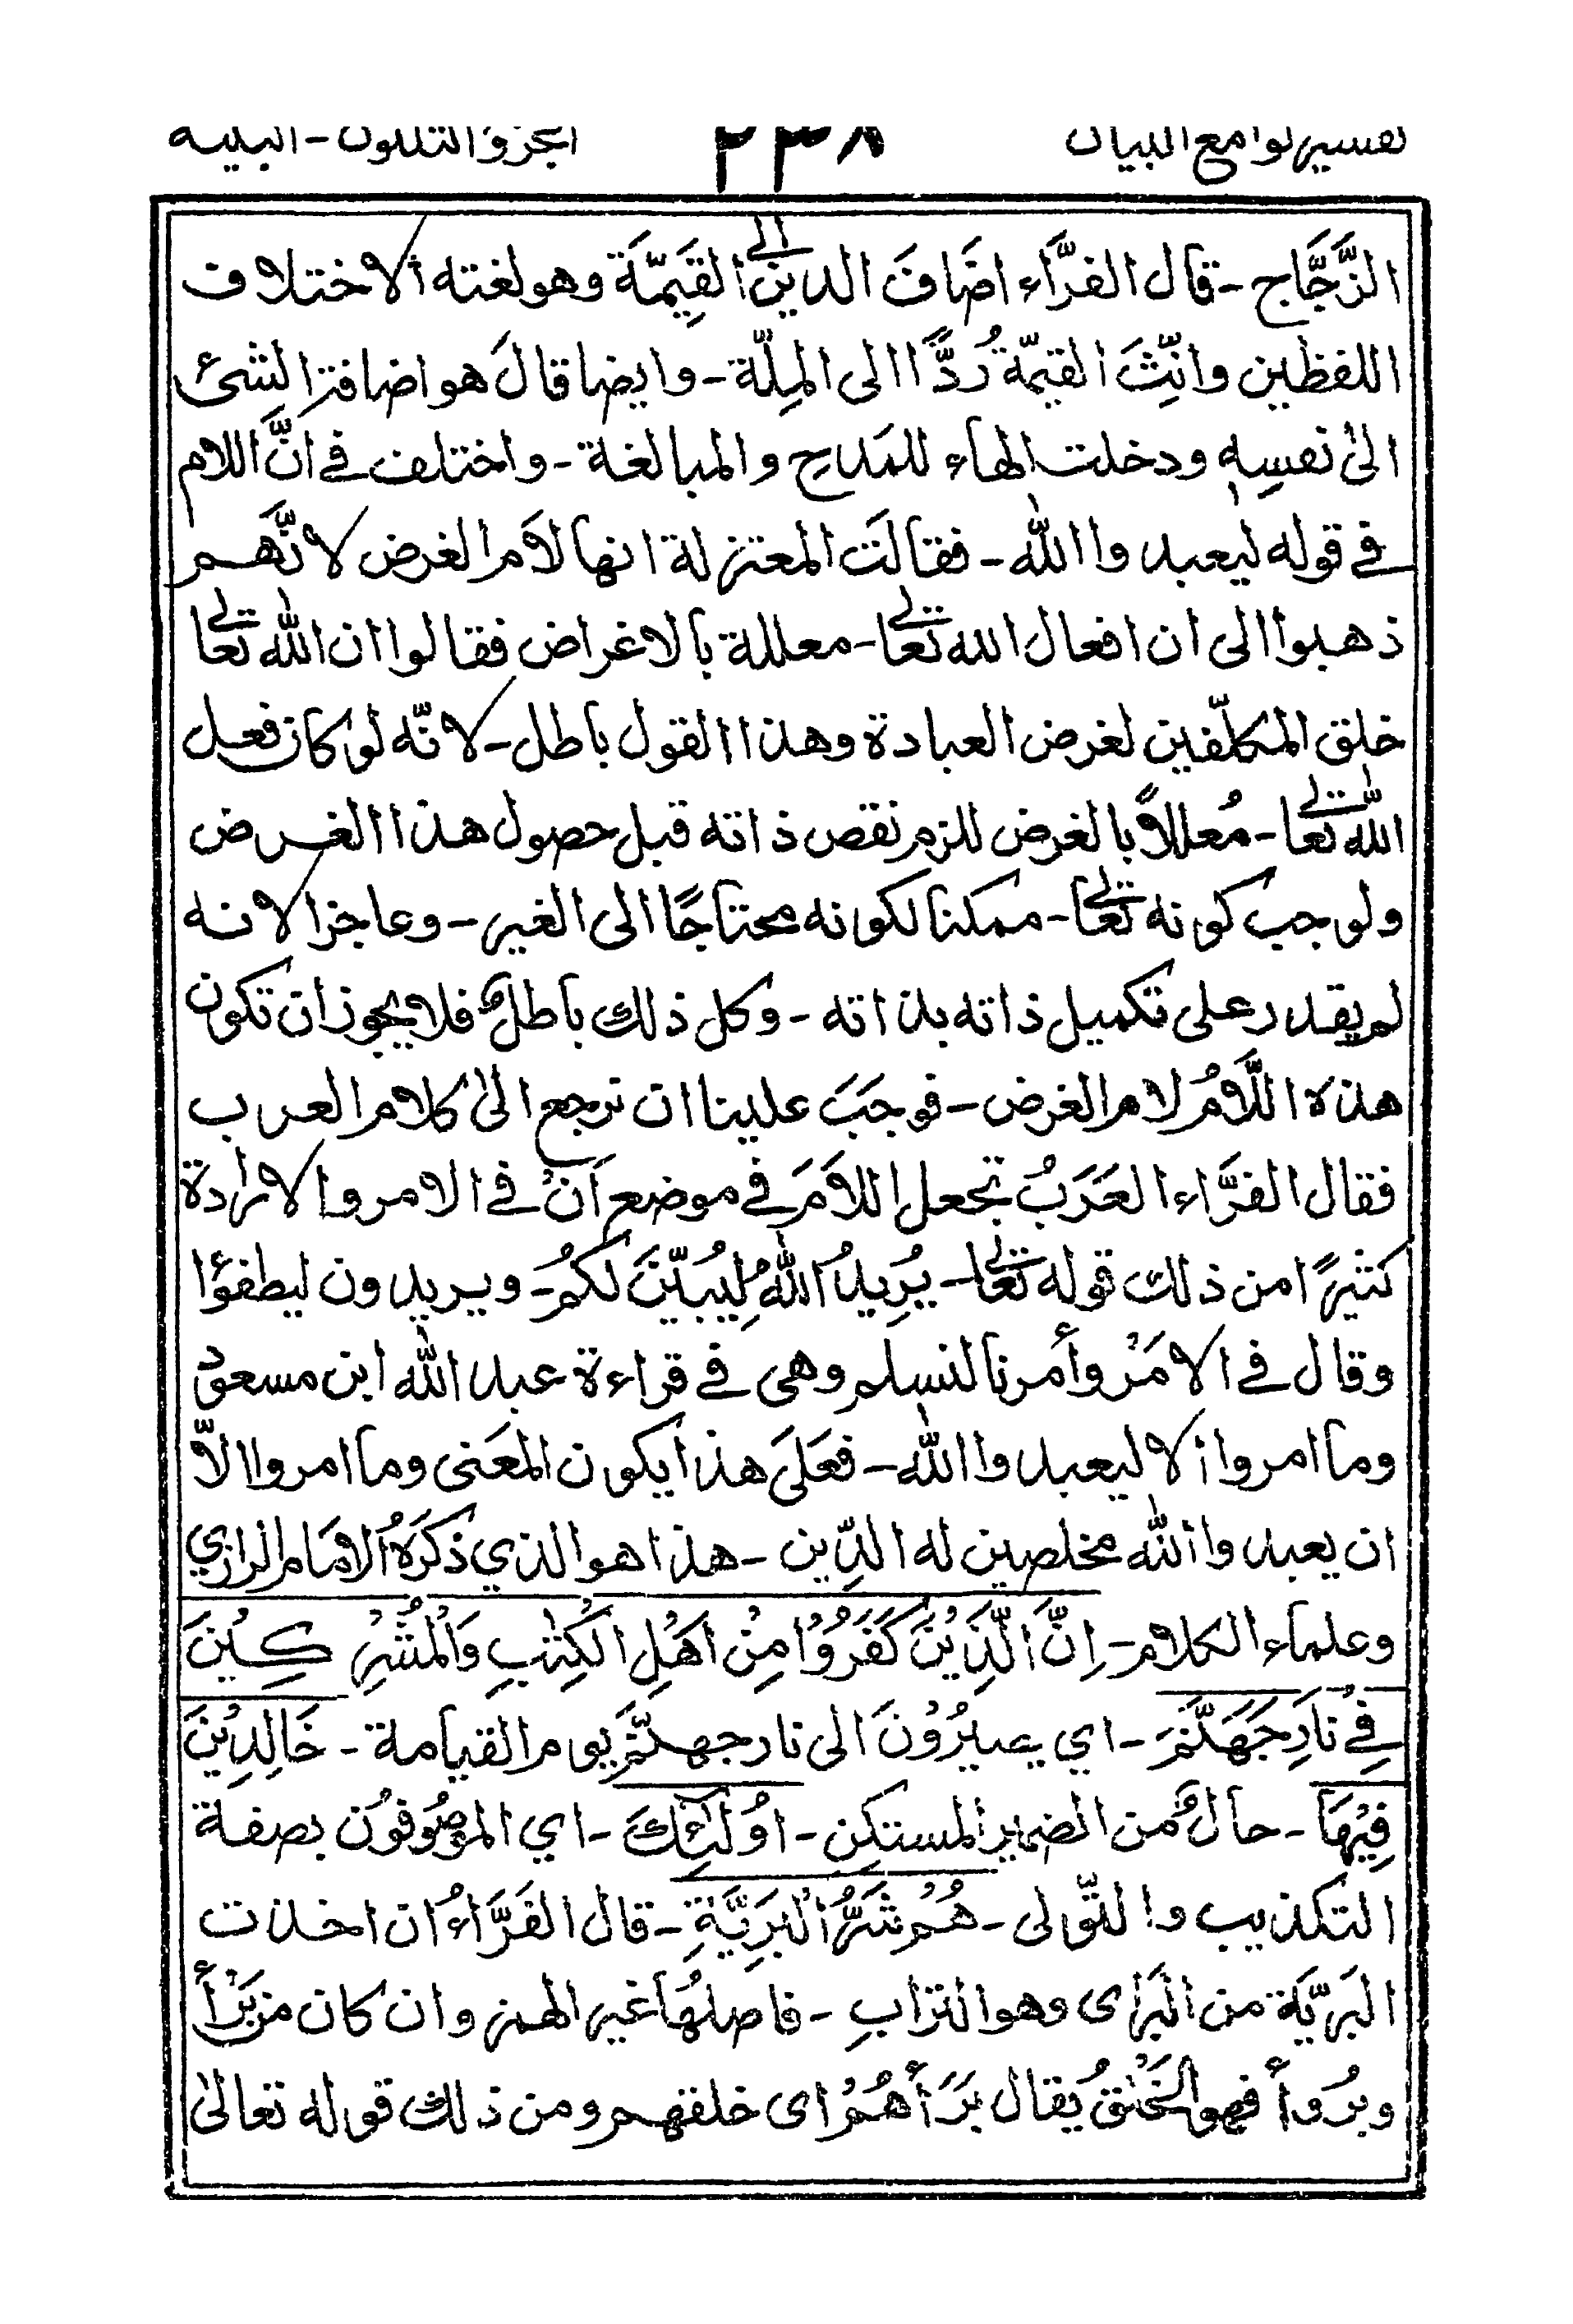 تفسير لوامع البيان ٢٣٨ الجزؤ الثلثون - البينة
الزَّجَّاج - قال الفرَّاء اضَافَ الدين الى القيِمّةَ وهو لغته الاختلاف
اللفظين وانّثَِ القيمّة رُدًّا الى المِلّة - وايضا قالَ هو اضافة الشئ
الىٰ نفسِهٖ ودخلت الهاء للمَدح والمبالغة - واختلف فى انَّ اللام
فى قوله ليعبدوا اللّٰه - فقالَت المعتزلة انها لاَم الغرض لانَّهم
ذهبوا الى ان افعال الله تعالى - معللة بالاغراض فقالوا ان اللّٰه تعالى
خلق المكلّفين لغرض العبادة وهذا القول باطل - لانّه لو كان فعل
اللّٰه تعالى - مُعللاً بالغرض للزم نقص ذاته قبل حصول هذا الغرض
ولوجب كونه تعالى - ممكنا لكونه محتاجًا الى الغير - وعاجزا لانه
لم يقدر على تكميل ذاته بذاته - وكل ذلك باطلٌ فلا يجوز ان تكون
هذه اللَّامُ لام الغرض - فوجَبَ علينا ان نرجع الىٰ كلام العرب
فقال الفرَّاء العَرَبُ تجعل اللاَمَ فى موضع اَنْ فى الامر والارادة
كثيرًا من ذلك قوله تعالى - يُرِيدُ اللّٰهُ لِيُبيّنَ لكُمْ - ويريدون ليطفؤا
وقال فى الامَرْ وأمرنا لنسلم وهى فى قراءة عبد اللّٰه ابن مسعود
وما امروا الا ليعبدوا اللّٰه - فعَلىَ هذا يكون المعَنى وما امروا الّا
ان يعبدوا اللّٰه مخلصين له الدِّين - هذا هو الذي ذكَرَهُ الامَام الرازي
وعلماء الكلام - اِنَّ الَّذِيْنَ كَفَرُوْا مِنْ اَهْلِ الْكِتٰبِ وَالْمُشْرِكِيْنَ
فِيْ نَارِ جَهَنَّمَ - اي يصيرُوْنَ الى نار جهنّم يوم القيامة - خَالِدِيْنَ
فِيْهَا - حالٌ من الضمير المستكِن - اُولٰئِكَ - اي الموصُوفوُن بصفة
التكذيب والتّولى - هُمْ شَرُّ الْبَرِيَّةِ - قال الفَرَّاءُ ان اخذت
البَرِيَّة من البَرٰى وهو الترابِ - فاصلهُا غير الهمز وان كان من بَرْأَ
وبرُوأَ فهو الخَلقُ يُقال بَرَأَهُمْ اى خلقهم ومن ذلك قوله تعالىٰ